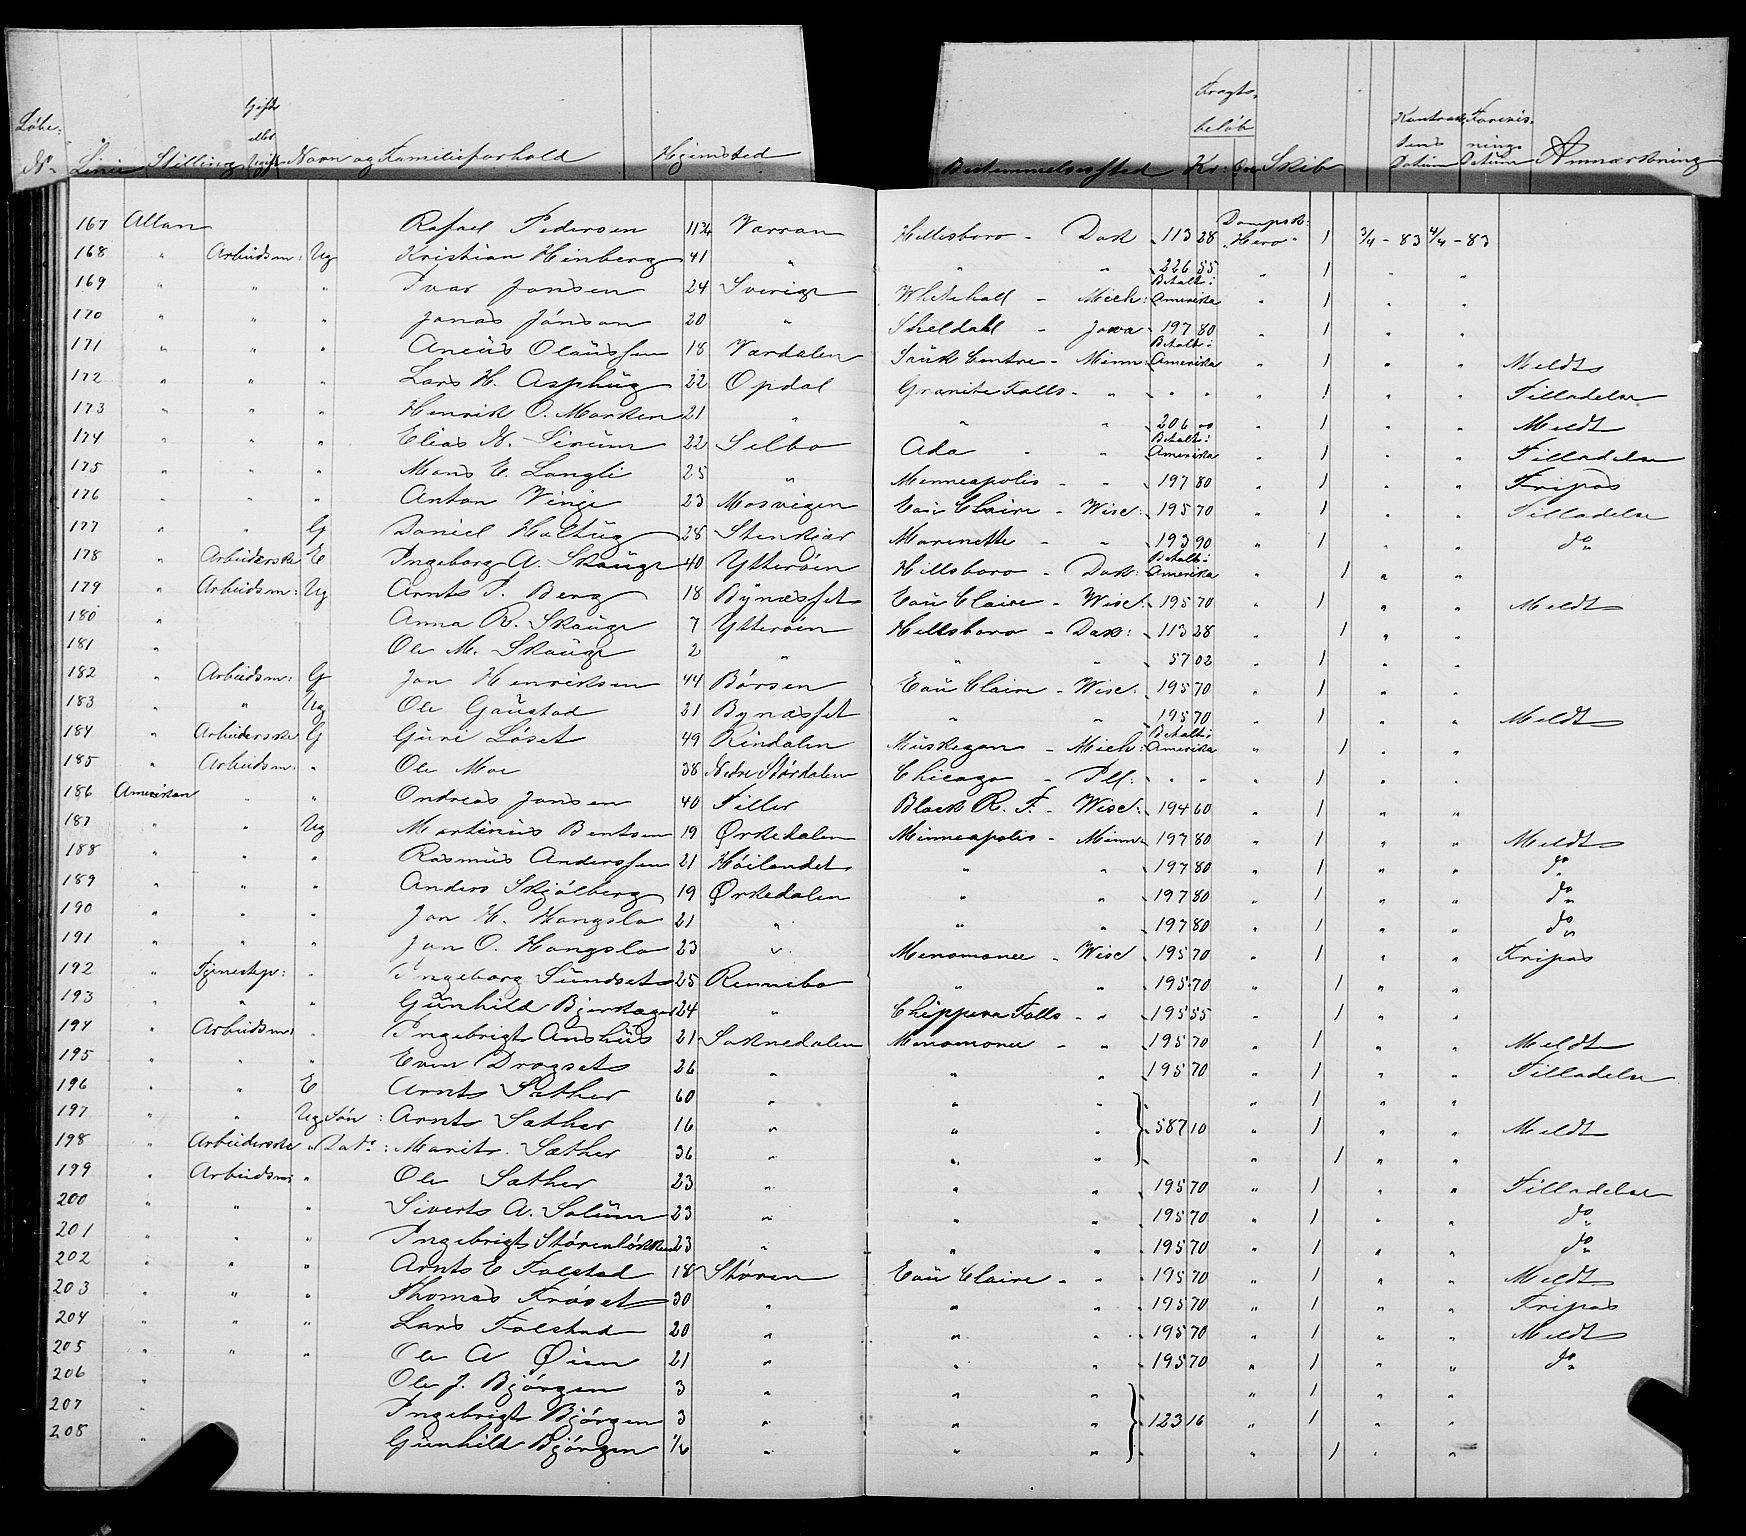 Løbe: No. Linie Stilling Gift eller Ugift Navn og Familieforhold Hjemsted Bestemmelsessted Fragtbeløb Kr: Øre Skib Kontraktens Datum Datum Anmærkning
167 Allan Rafael Pedersen 11 3/4 Værran Hillesboro - Dak 113 28 Dampsk: "Hero" 1 3/4 - 83 4/4 - 83
168 " Arbeidsm: Ug Kristian Hinberg 41 " " " 226 55 " 1 " "
169 " " " Ivar Jonsen 24 Sverige Whitehall - Mich: Betalt i Amerika " 1 " "
170 " " " Jonas Jónson 20 " Sheldahl - Jowa 197 80 " 1 " "
171 " " " Olaüssen 18 Værdalen Saük Centre - Minn: Betalt i Amerika " 1 " " Meldt
172 " " " Lars H. Asphüg 22 Opdal Granite Falls - " " " " 1 " " Tilladelse
173 " " " Henrik O. Morken 21 " " " 206 00 " 1 " " Meldt
174 " " " Elias N. 22 Selbo Ada - " Betalt i Amerika " 1 " " Tilladelse
175 " " " Mons E. Langli 25 " Minneapolis - " 197 80 " 1 " " Fripas
176 " " " Anton Vinge 23 Mosvigen Eau Claire - Wisc: 195 70 " 1 " " Tilladelse
177 " " G Daniel Holtüg 28 Stenkjær Marenette - " 193 90 " 1 " " do
178 " Arbeiderske E Ingeborg A. Skaüge 40 Ytterøen Hillsboro - Dak: Betalt i Amerika " 1 " "
179 " Arbeidsm: Ug Arnt P. Berg 18 Bynæsset Eau Claire - Wisc: 195 70 " 1 " " Meldt
180 " Anna R. Skaüge 7 Ytterøen Hillsboro - Dak: 113 28 " 1 " "
181 " Ole M. Skaüge 2 " " " 57 02 " 1 " "
182 " Arbeidsm: G Jon Henriksen 44 Børsen Eau Claire - Wisc: 195 70 " 1 " "
183 " " Ug Ole Gaüstad 21 Bynæsset " " 195 70 " 1 " " Meldt
184 " Arbeiderske G Güri Løset 49 Rindalen Müskegon - Mich: Betalt i Amerika " 1 " "
185 " Arbeidsm: " Ole Moe 38 Nedre Størdalen Chicago - Ill: " " " 1 " "
186 Amerikan " " Ondreas Jonsen 40 Tiller Black R. F. - Wisc: 194 60 " 1 " "
187 " " Ug Martinüs Bentsen 19 Ørkedalen Minneapolis - Minn 197 80 " 1 " " Meldt
188 " " " Rasmüs Anderssen 21 Høilandet " " 197 80 " 1 " " do
189 " " " Anders Skjølberg 19 Ørkedalen " " 197 80 " 1 " " do
190 " " " Jon H. Hongslo 21 " " " 197 80 " 1 " " do
191 " " " Jon O. Hongslo 23 " Menomonee - Wisc 195 70 " 1 " " Fripas
192 " Tjenestep: " Ingeborg Sündset 25 Rennebo " " 195 70 " 1 " "
193 " " " Günhild 24 " Chippeva Falls - " 195 55 " 1 " "
194 " Arbeidsm: " Ingebrigt Anshüs 21 Soknedalen Menomonee - " 195 70 " 1 " " Meldt
195 " " " Even Dragset 26 " " " 195 70 " 1 " " Tilladelse
196 " " E Arnt Sæther 60 " " " " 1 " "
197 " " Ug Søn: Arnt Sæther 16 " " " 587 10 " 1 " " Meldt
198 " Arbeiderske " Dat: Marit Sæther 36 " " " " 1 " "
199 " Arbeidsm: " Ole Sæther 23 " " " 195 70 " 1 " " Tilladelse
200 " " " Sivert A. Solüm 23 " " " 195 70 " 1 " " do
201 " " " Ingebrigt 23 " " " 195 70 " 1 " " do
202 " " " Arnt E Folstad 18 Støren Eau Claire - " 195 70 " 1 " " Meldt
203 " " " Thomas Frøset 30 " " " 195 70 " 1 " " Fripas
204 " " " Lars Folstad 20 " " " 195 70 " 1 " " Meldt
205 " " " Ole A Øien 21 " " " 195 70 " 1 " " do
206 " Ole J. Bjørgen 3 " " " " 1 " "
207 " Ingebrigt Bjørgen 3 " " " 123 16 " 1 " "
208 " Günhild Bjørgen 1/6 " " " " 1 " "